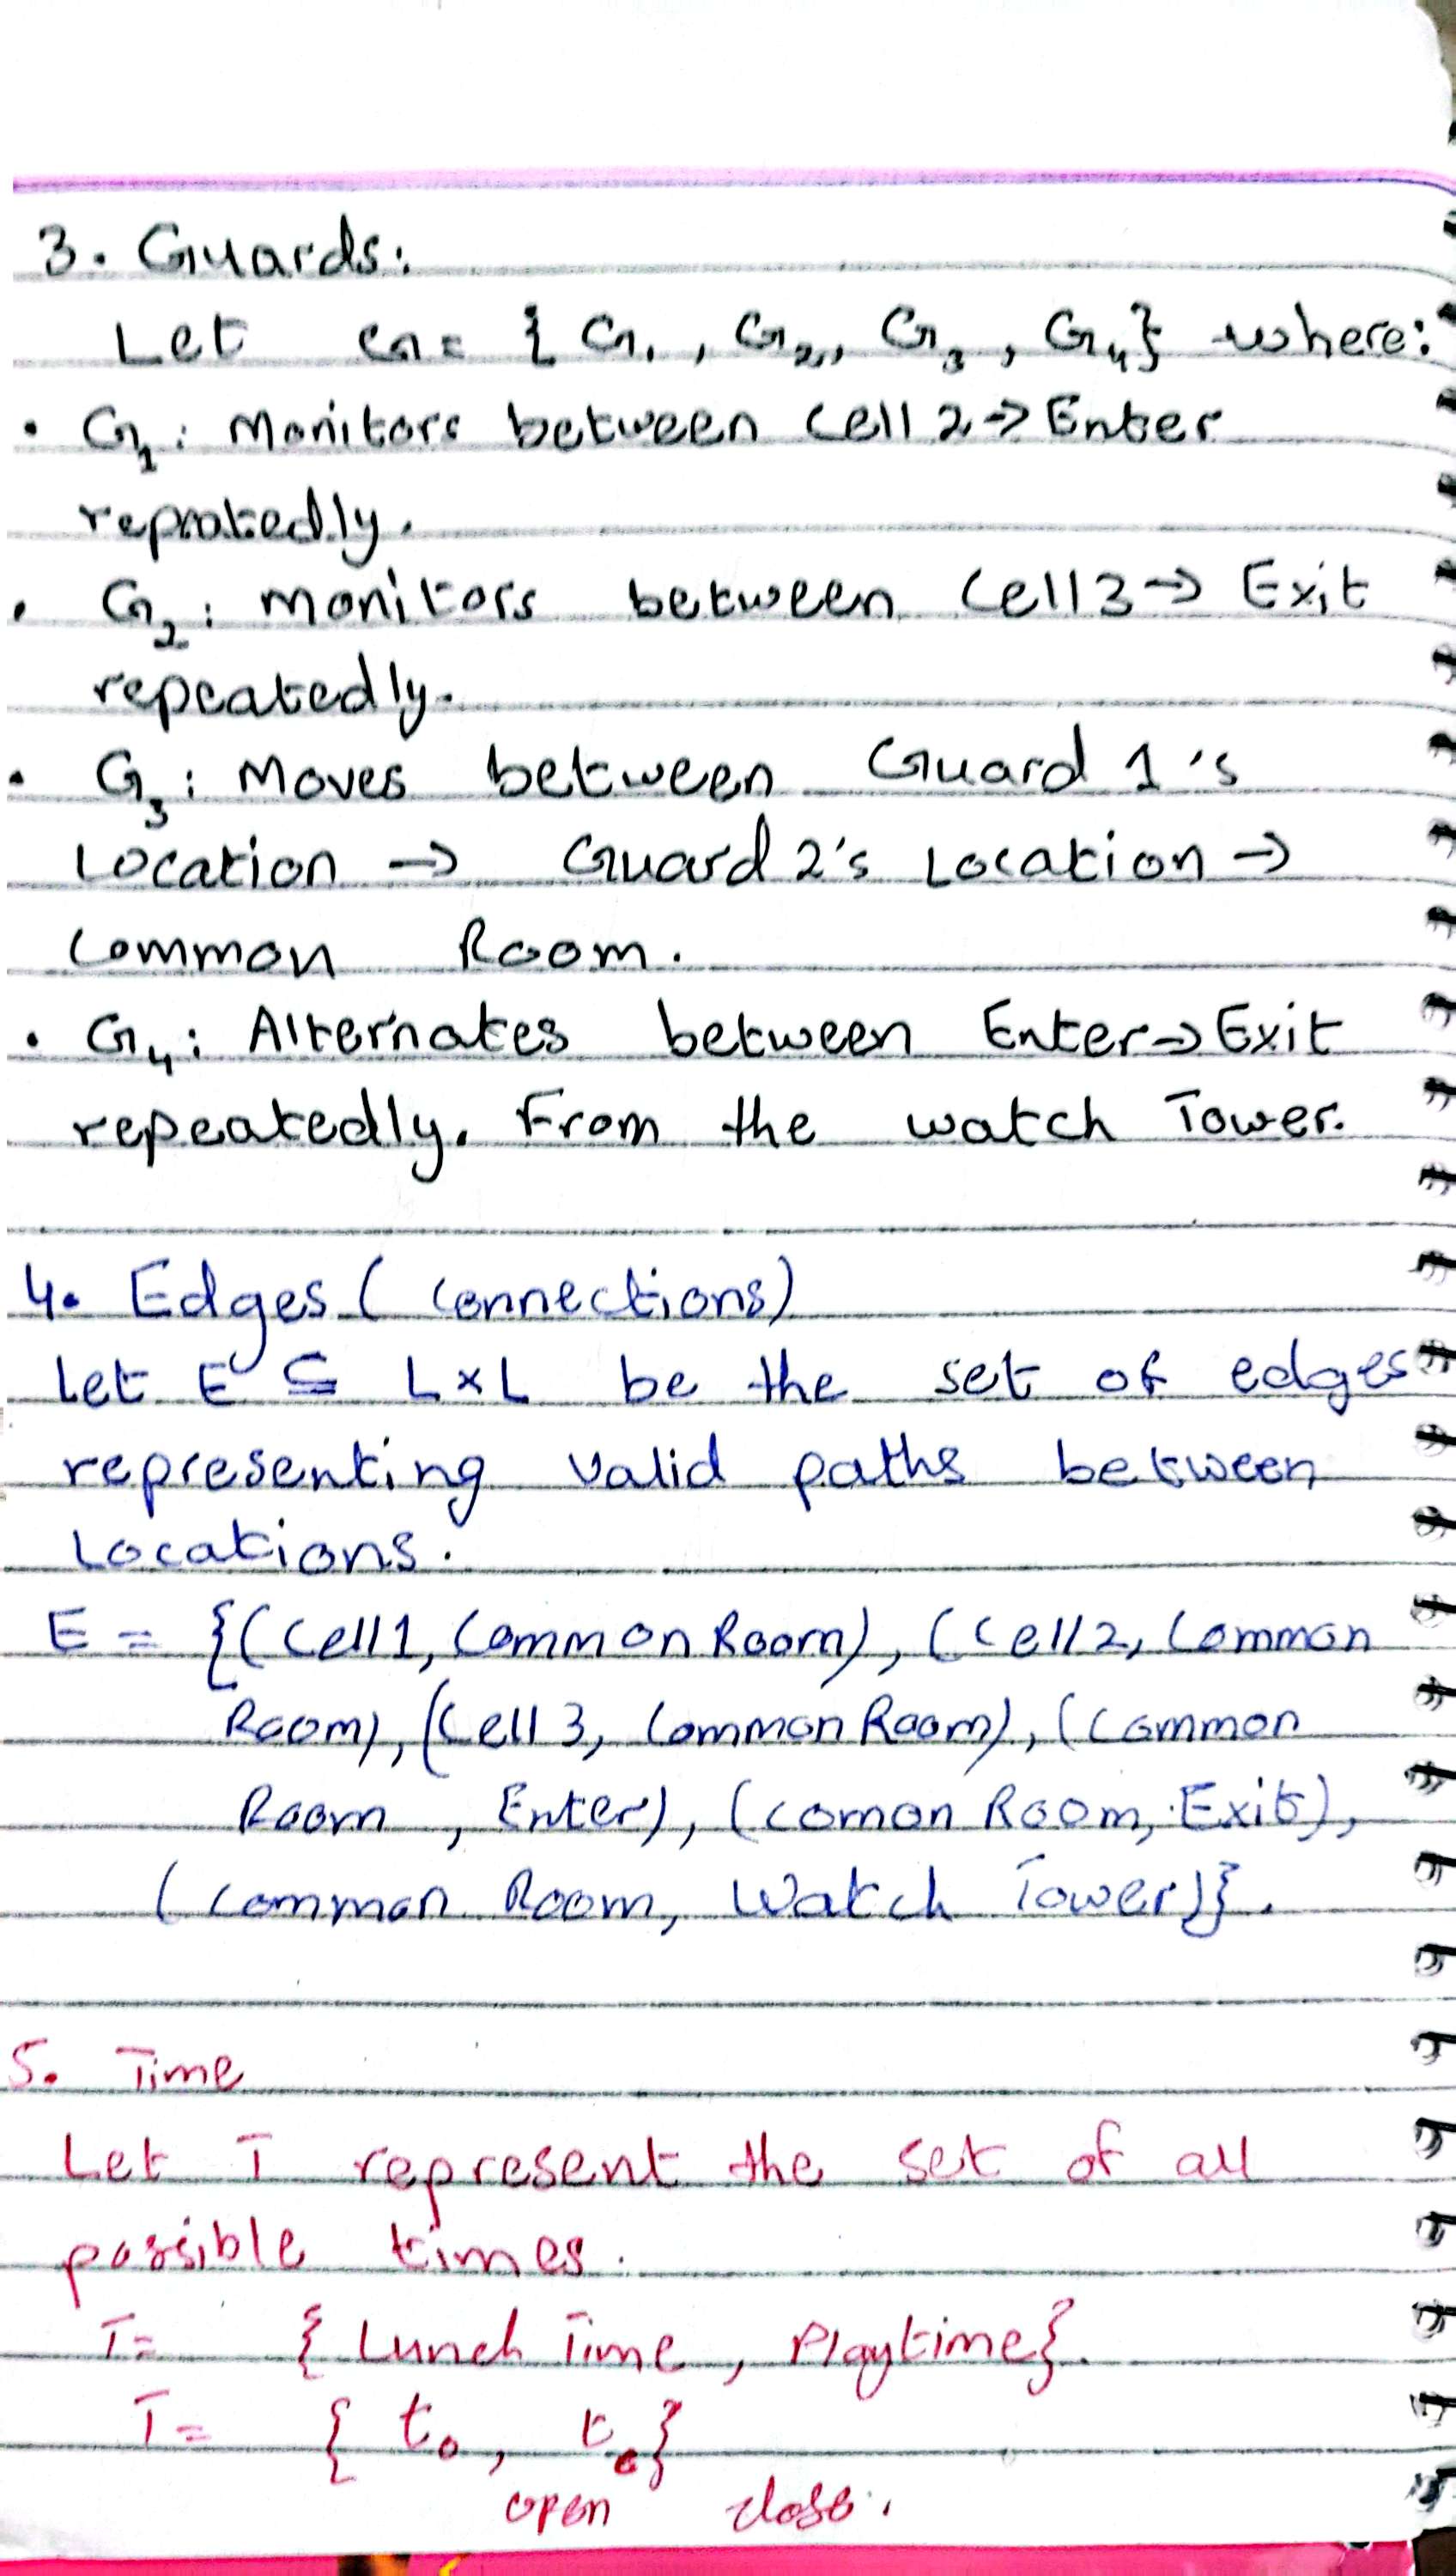 3. Guards:
Let G = { G₁, G₂, G₃, G₄} where:
• G₁: Monitors between Cell 2 → Enter
repeatedly.
• G₂: monitors between Cell 3 → Exit
repeatedly.
• G₃: Moves between Guard 1's
Location → Guard 2's Location →
Common Room.
• G₄: Alternates between Enter → Exit
repeatedly. From the watch Tower.
4. Edges ( Connections)
Let E ⊆ L×L be the set of edges
representing valid paths between
Locations.
E = {(Cell 1, Common Room), (Cell 2, Common
Room), (Cell 3, Common Room), (Common
Room , Enter), (comon Room, Exit),
( Common Room, Watch Tower)}.
5. Time
Let T represent the set of all
possible times.
T= { Lunch Time, Playtime}.
T= { t₀, tc}
open close.